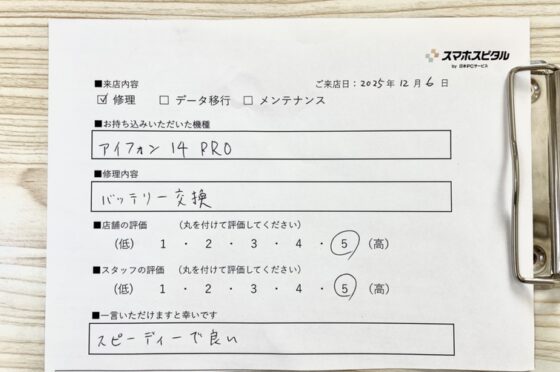 スマホスピタル
by 日本PCサービス
■来店内容 ご来店日：2025年12月6日
☑ 修理 □ データ移行 □ メンテナンス
■お持ち込みいただいた機種
アイフォン 14 PRO
■修理内容
バッテリー交換
■店舗の評価 （丸を付けて評価してください）
（低） 1 ・ 2 ・ 3 ・ 4 ・ 5 （高）
■スタッフの評価 （丸を付けて評価してください）
（低） 1 ・ 2 ・ 3 ・ 4 ・ 5 （高）
■一言いただけますと幸いです
スピーディーで良い